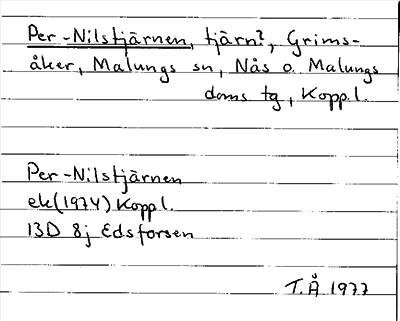 Per-Nilstjärnen, tjärn?, Grims-
åker, Malungs sn, Nås o. Malungs
doms tg, Koppl.
Per-Nilstjärnen
ek(1974) Koppl.
13D 8j Edsforsen
T.Å 1977